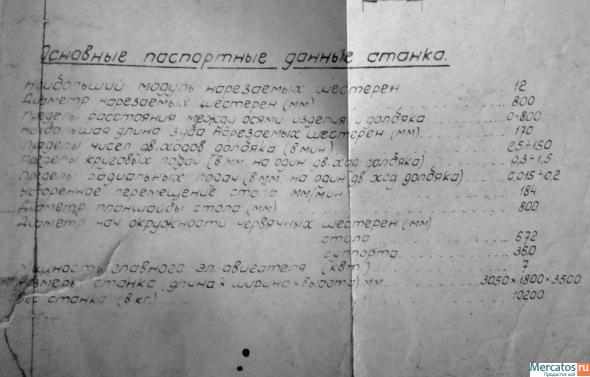 Основные паспортные данные станка.
Наибольший модуль нарезаемых шестерен 12
Диаметр нарезаемых шестерен (мм) 800
Пределы расстояния между осями изделия и долбяка 0÷800
Наибольшая длина зуба нарезаемых шестерен (мм) 170
Пределы чисел дв. ходов долбяка (в мин) 25÷150
Пределы круговых подач (в мм на один дв. ход долбяка) 0,3÷1,5
Пределы радиальных подач (в мм на один дв. ход долбяка) 0,015÷0,2
Ускоренное перемещение стола мм/мин 184
Диаметр планшайбы стола (мм) 800
Диаметр нач окружности червячных шестерен (мм)
стола 672
суппорта 360
Мощность главного эл. двигателя (квт.) 7
Размеры станка (длина × ширина × высота) мм. 3050×1800×3500
Вес станка (в кг.) 10200
Mercatos.ru
Продается всё